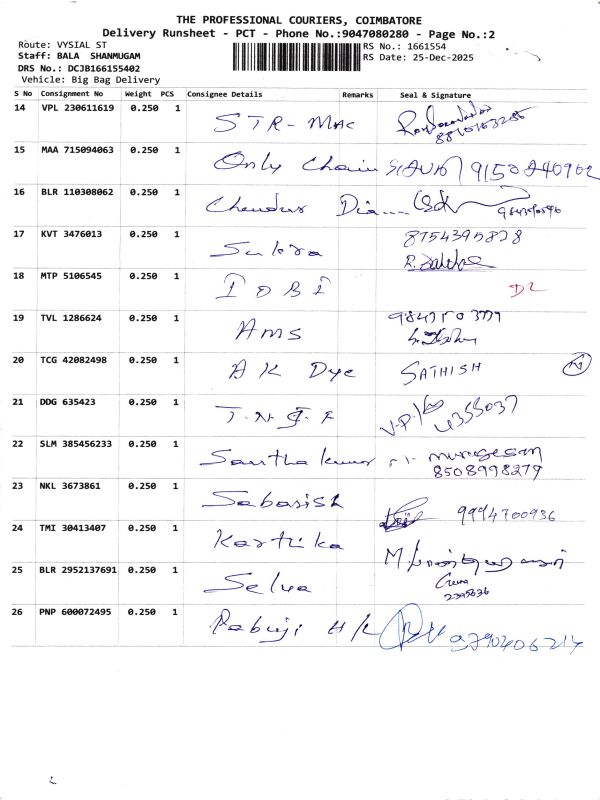 THE PROFESSIONAL COURIERS, COIMBATORE
Delivery Runsheet - PCT - Phone No.:9047080280 - Page No.:2
Route: VYSIAL ST
RS No.: 1661554
Staff: BALA SHANMUGAM
RS Date: 25-Dec-2025
DRS No.: DCJB166155402
Vehicle: Big Bag Delivery
S No Consignment No Weight PCS Consignee Details Remarks Seal & Signature
14 VPL 230611619 0.250 1 STR-MAC
15 MAA 715094063 0.250 1 Only Chain
16 BLR 110308062 0.250 1
17 KVT 3476013 0.250 1 8754395828
18 MTP 5106545 0.250 1 IDBI D2
19 TVL 1286624 0.250 1 AMS
20 TCG 42082498 0.250 1 AK Dye SATHISH
21 DDG 635423 0.250 1 V.P. 4355037
22 SLM 385456233 0.250 1 Santhakumar murugesan
8508998279
23 NKL 3673861 0.250 1 Sabarish 9994700936
24 TMI 30413407 0.250 1 Kartika
25 BLR 2952137691 0.250 1 Selva
26 PNP 600072495 0.250 1 H/K 9790406214